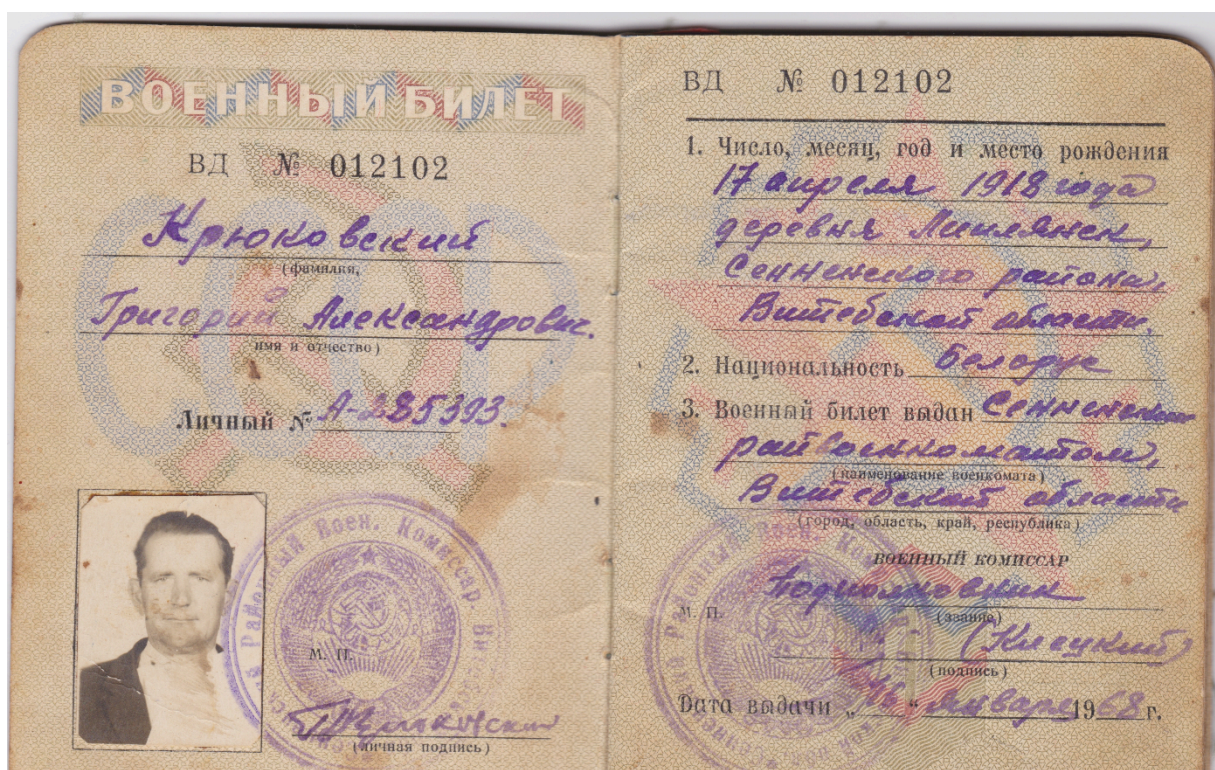 ВОЕННЫЙ БИЛЕТ
ВД № 012102
Крюковский
(фамилия,
Григорий Александрович.
имя и отчество)
Личный № А-285393.
Районный Воен. Комиссар.
М. П.
(личная подпись)
ВД № 012102
1. Число, месяц, год и место рождения
17 апреля 1918 года
деревня
Сенненского района,
Витебской области.
2. Национальность Белорус
3. Военный билет выдан Сенненским
райвоенкоматом,
(наименование военкомата)
Витебской области
(город, область, край, республика)
ВОЕННЫЙ КОМИССАР
Подполковник
М. П.
(звание)
(Клецкий)
(подпись)
Дата выдачи „ “ января 1968 г.